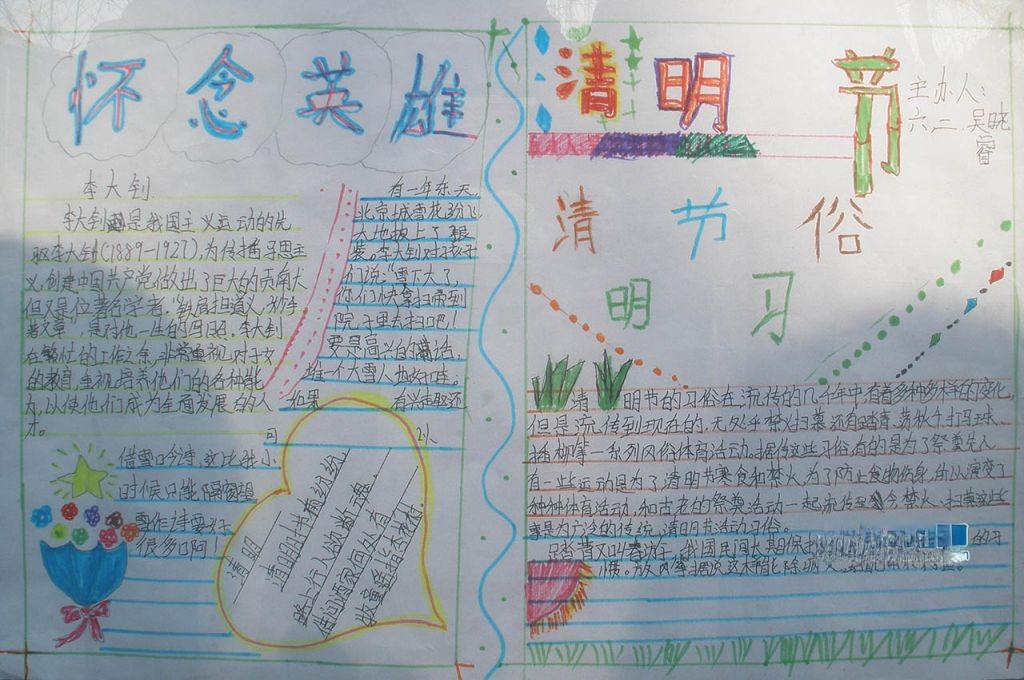 怀念英雄
李大钊
李大钊是我国主义运动的先
驱李大钊(1889-1927),为传播马思主
义,创建中国共产党做出了巨大的贡角大
但又是位著行学者."铁肩担道义,妙手
著文章",是对他一生的写照.李大钊
在繁忙的工作之余,非常重视对子女
的教育,重视培养他们的各种能
力,以使他们成为全面发展的人
才。
有一年冬天,
北京城雪花纷飞
大地披上了银
装。李大钊对孩子
们说:"雪下大了,
你们快拿扫帚到
院子里去扫吧!
要是高兴的话,
堆一个大雪人也好哇;
如果 有兴趣还
可 以
借雪吟诗,这比我小
时候只能隔窗望
雪作诗要好
很多啊!
清明
清明时节雨纷纷
路上行人欲断魂.
借问酒家何处有
牧童遥指杏花村.
清明节
主办人:
六.二.吴晓
睿
清 节 俗
明 习
清明节的习俗在流传的几千年中有着多种多样的变化,
但是流传到现在的,无及乎禁火扫墓还有踏青、荡秋千打马球、
插柳等一系列风俗体育活动。据传这些习俗有的是为了祭奠先人
有一些运动是为了清明节寒食和禁火,为了防止食物伤身,所以演变了
种种体育活动,和古老的祭奠活动一起流传至今禁火、扫墓这些
事是为广泛的传统,清明节活动习俗。
我国民间长期保
的习